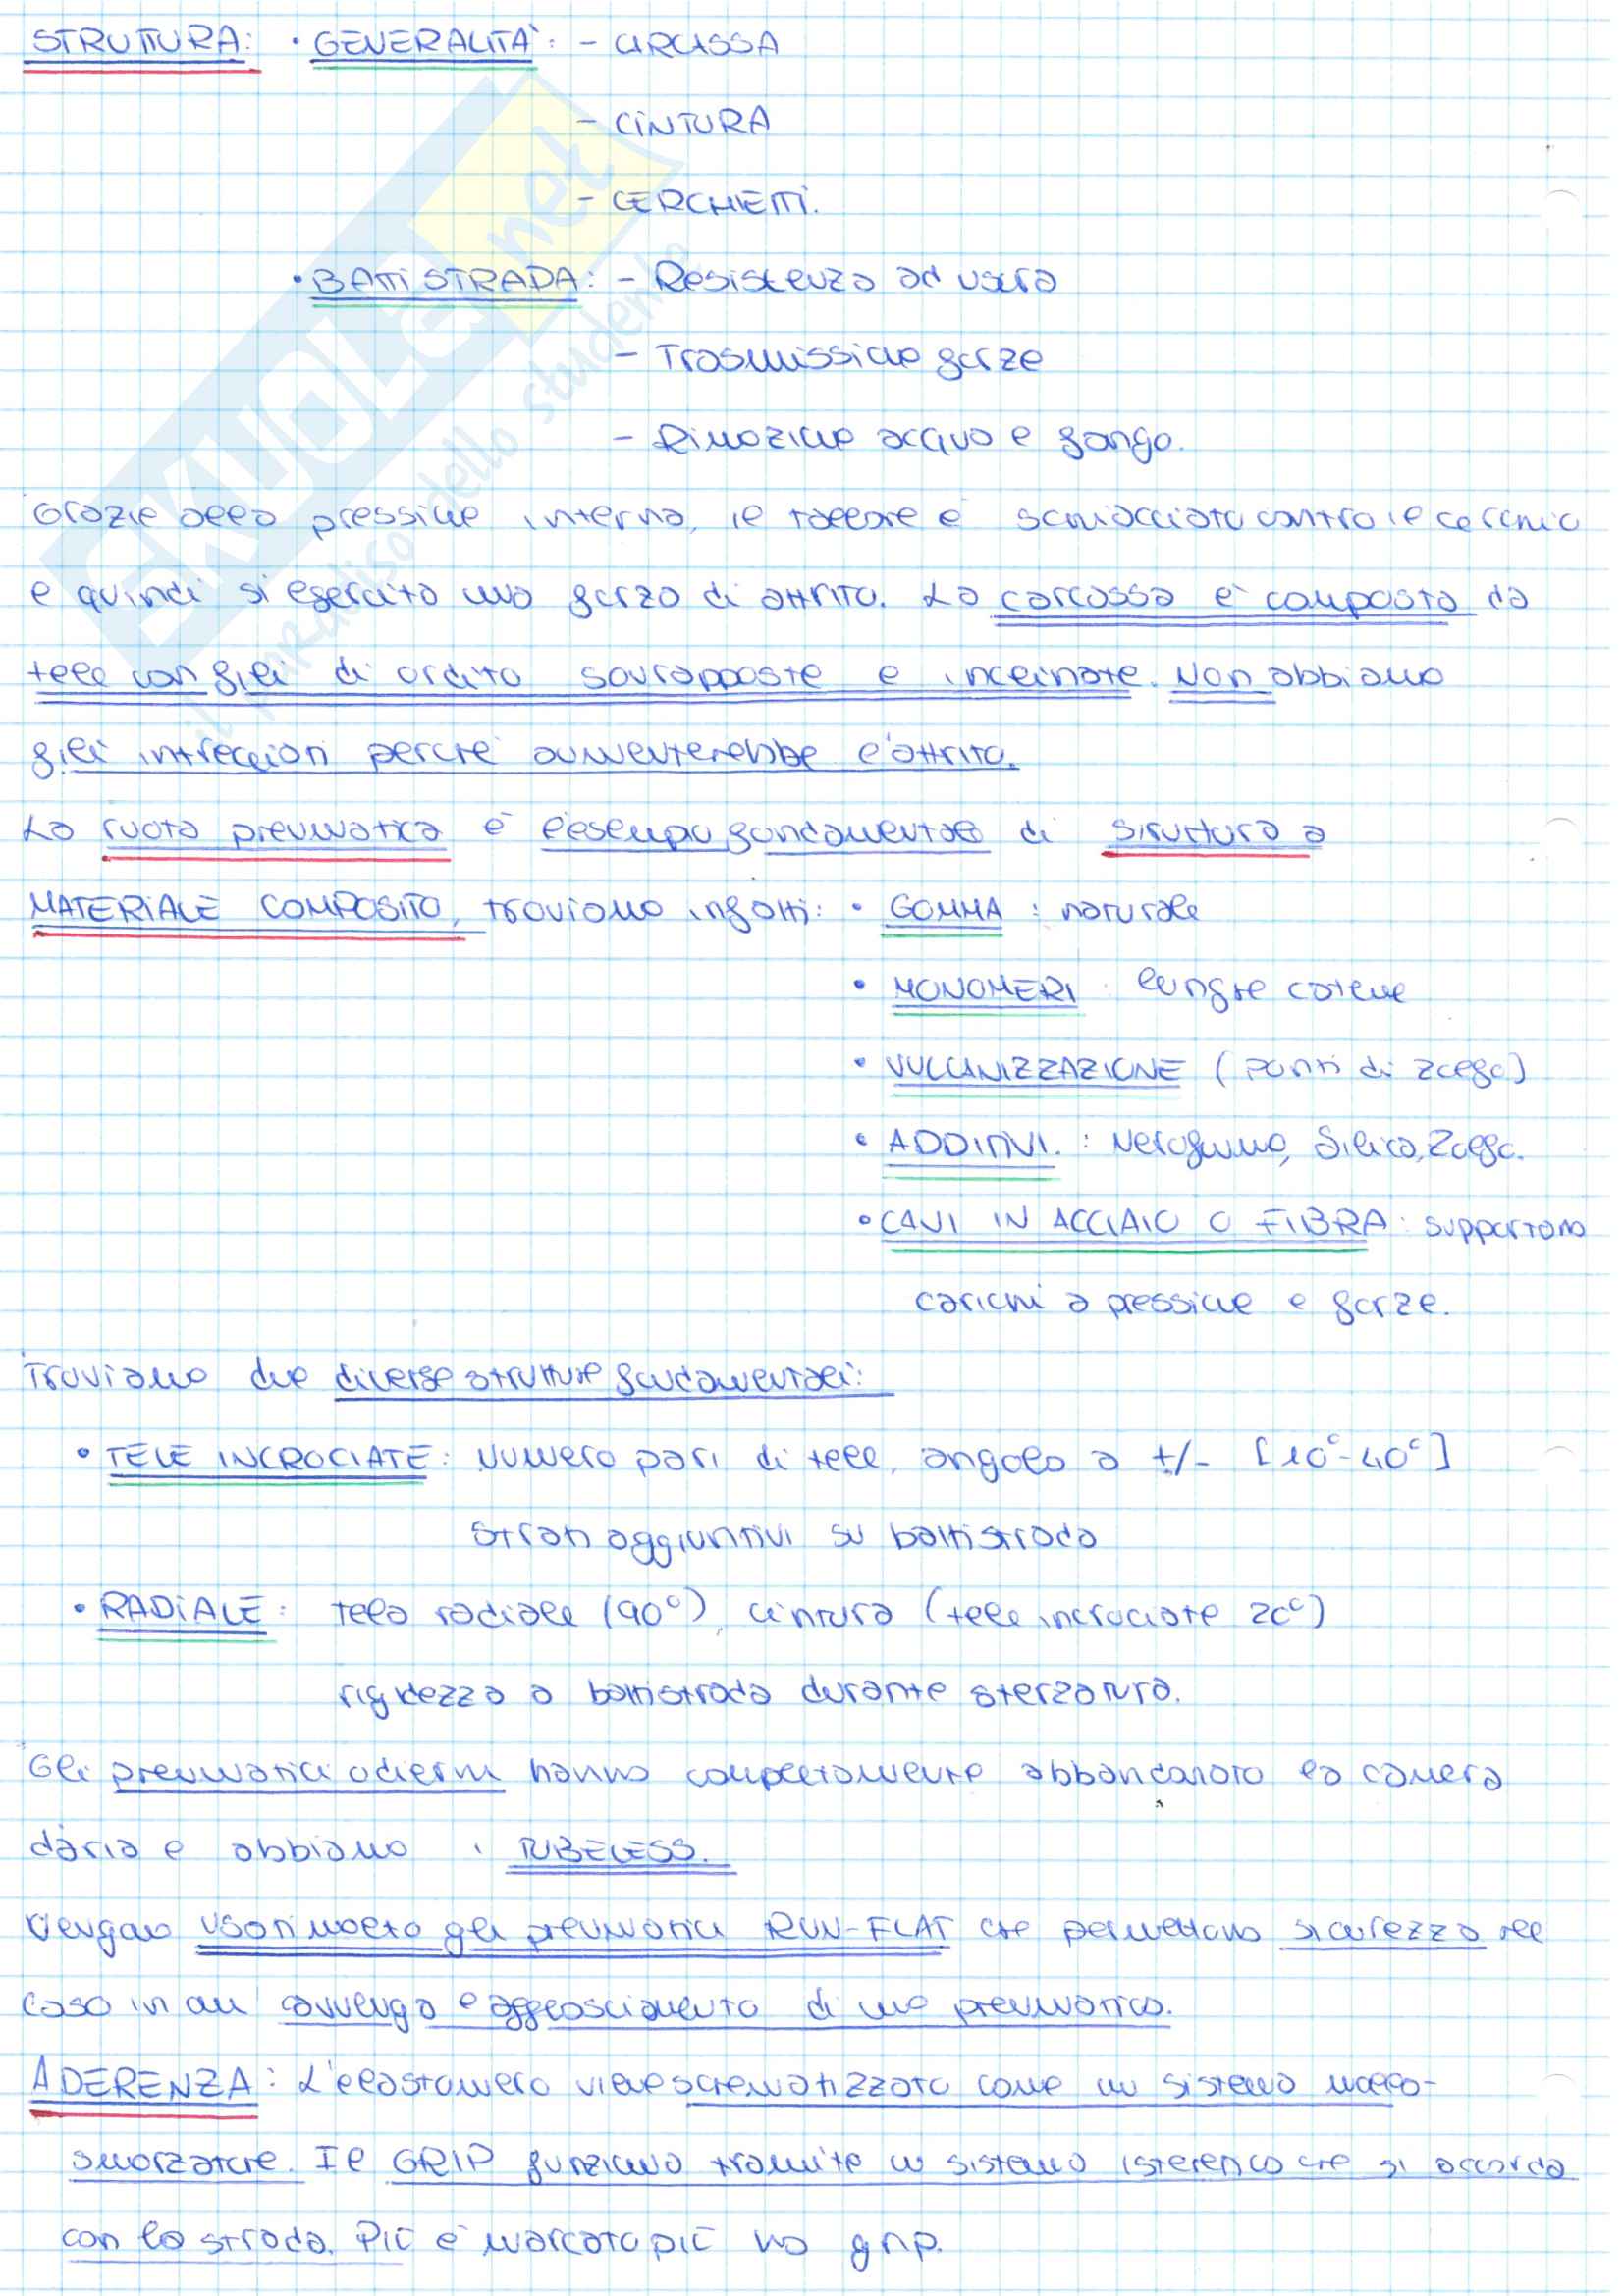 STRUTTURA: • GENERALITÀ: - CARCASSA
- CINTURA
- CERCHIETTI.
• BATTISTRADA: - Resistenza ad usura
- Trasmissione forze
- Rimozione acqua e fango.
Grazie alla pressione interna, il tallone è schiacciato contro il cerchio
e quindi si esercita una forza di attrito. La carcassa è composta da
tele con fili di ordito sovrapposte e inclinate. Non abbiamo
fili intrecciati perché aumenterebbe l'attrito.
La ruota pneumatica è l'esempio fondamentale di struttura a
MATERIALE COMPOSITO, troviamo infatti: • GOMMA : naturale
• MONOMERI : lunghe catene
• VULCANIZZAZIONE (ponti di zolfo)
• ADDITIVI. : Nerofumo, Silica, Zolfo.
• CAVI IN ACCIAIO O FIBRA: supportano
carichi a pressione e forze.
Troviamo due diverse strutture fondamentali:
• TELE INCROCIATE: Numero pari di tele, angolo a +/- [10°-40°]
strati aggiuntivi su battistrada
• RADIALE: tela radiale (90°), cintura (tele incrociate 20°)
rigidezza a battistrada durante sterzatura.
Gli pneumatici odierni hanno completamente abbandonato la camera
d'aria e abbiamo i TUBELESS.
Vengono usati molto gli pneumatici RUN-FLAT che permettono sicurezza nel
caso in cui avvenga l'afflosciamento di uno pneumatico.
ADERENZA: L'elastomero viene schematizzato come un sistema molla-
smorzatore. Il GRIP funziona tramite un sistema isteretico che si accorda
con la strada. Più è marcato più ho grip.
SKUOLA.net
il paradiso dello studente